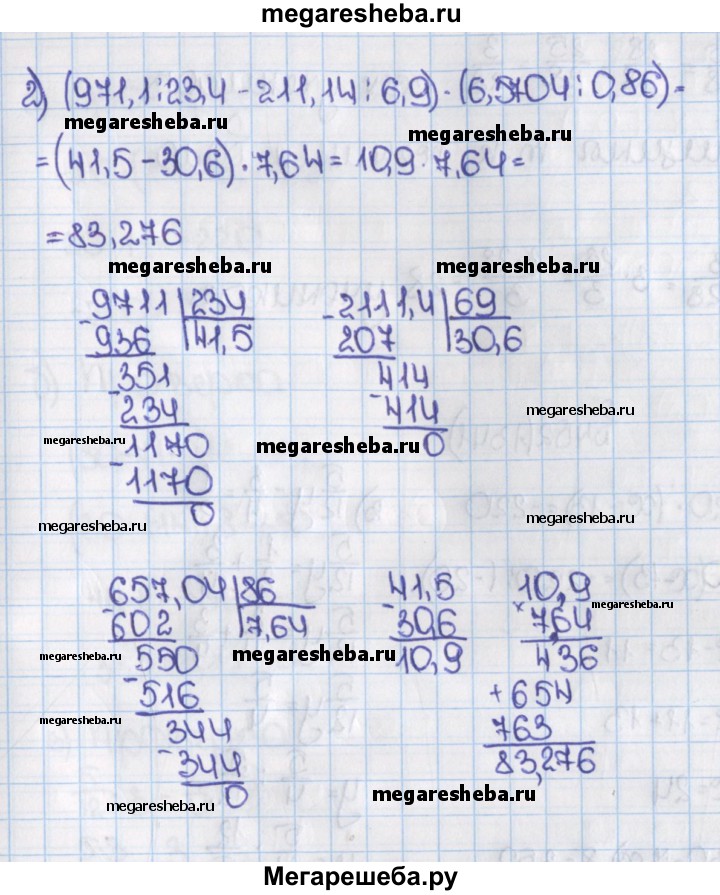 megaresheba.ru
2) (971,1:23,4 - 211,14:6,9)·(6,5704:0,86)=
megaresheba.ru megaresheba.ru
=(41,5-30,6)·7,64=10,9·7,64=
=83,276
megaresheba.ru megaresheba.ru
9711 234 2111,4 69
-936 41,5 -207 30,6
351 414
-234 -414 megaresheba.ru
megaresheba.ru 1170 megaresheba.ru 0
-1170
0
megaresheba.ru megaresheba.ru
657,04 86 41,5 10,9
-602 7,64 -30,6 ×7,64 megaresheba.ru
megaresheba.ru 550 megaresheba.ru 10,9 436
-516 +654
megaresheba.ru 344 763
-344 83,276
0
megaresheba.ru megaresheba.ru
Мегарешеба.ру